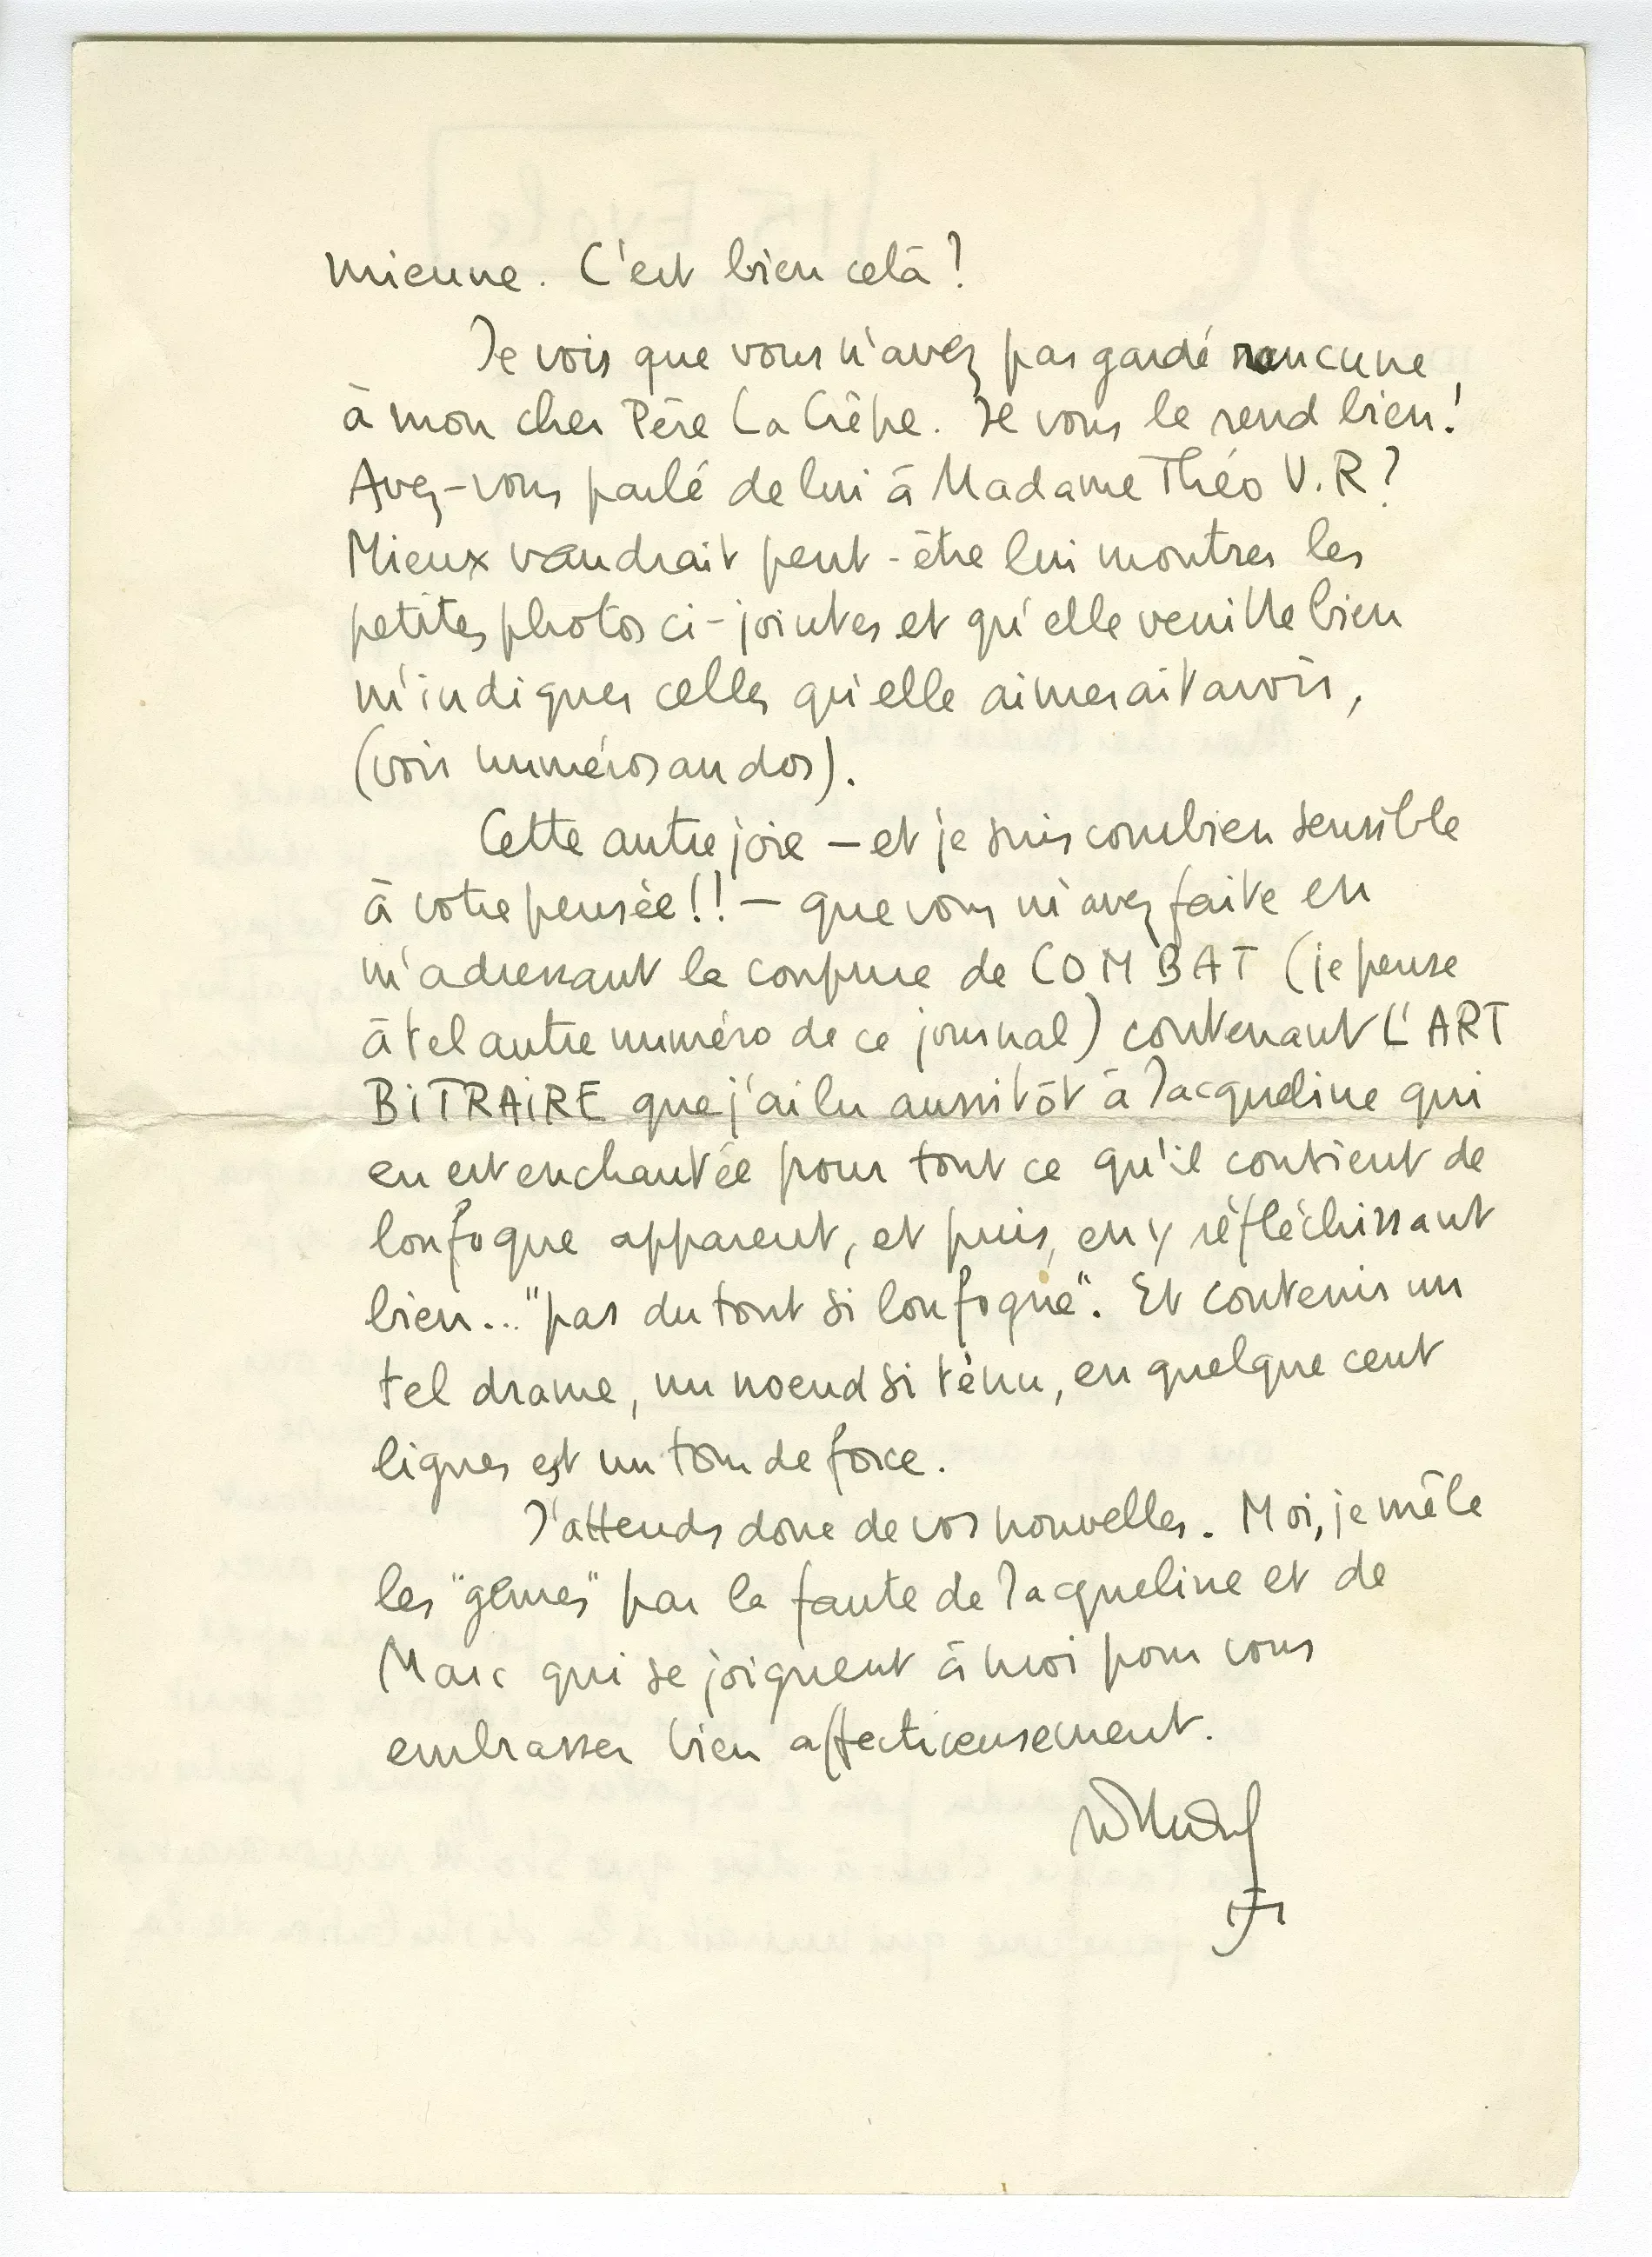 mienne. C'est bien celà?
Je vois que vous n'avez pas gardé rancune
à mon cher Père La Crêpe. Je vous le rend bien!
Avez-vous parlé de lui à Madame Théo V.R?
Mieux vaudrait peut-être lui montrer les
petites photos ci-jointes et qu'elle veuille bien
m'indiquer celles qu'elle aimerait avoir,
(voir numéros au dos).
Cette autre joie — et je suis combien sensible
à votre pensée!! — que vous m'avez faite en
m'adressant la coupure de COMBAT (je pense
à tel autre numéro de ce journal) contenant L'ART
BiTRAiRE que j'ai lu aussitôt à Jacqueline qui
en est enchantée pour tout ce qu'il contient de
loufoque apparent, et puis, en y réfléchissant
bien... "pas du tout si loufoque". Et contenir un
tel drame, un noeud si ténu, en quelque cent
lignes est un tour de force.
J'attends donc de vos nouvelles. Moi, je mêle
les "gênes" par la faute de Jacqueline et de
Marc qui se joignent à moi pour vous
embrasser bien affectueusement.